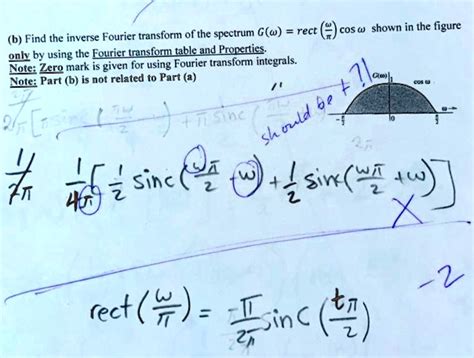 (b) Find the inverse Fourier transform of the spectrum G(ω) = rect (ω/π) cos ω shown in the figure
only by using the Fourier transform table and Properties.
Note: Zero mark is given for using Fourier transform integrals.
Note: Part (b) is not related to Part (a)
G(ω) cos ω
should be t ?!
-π/2 0 π/2 ω
1/2π 1/4π [ 1/2 sinc( ωπ/2 - ω) + 1/2 sinc( ωπ/2 + ω) ]
X
-2
rect( ω/π ) = π/2π sinc ( tπ/2 )